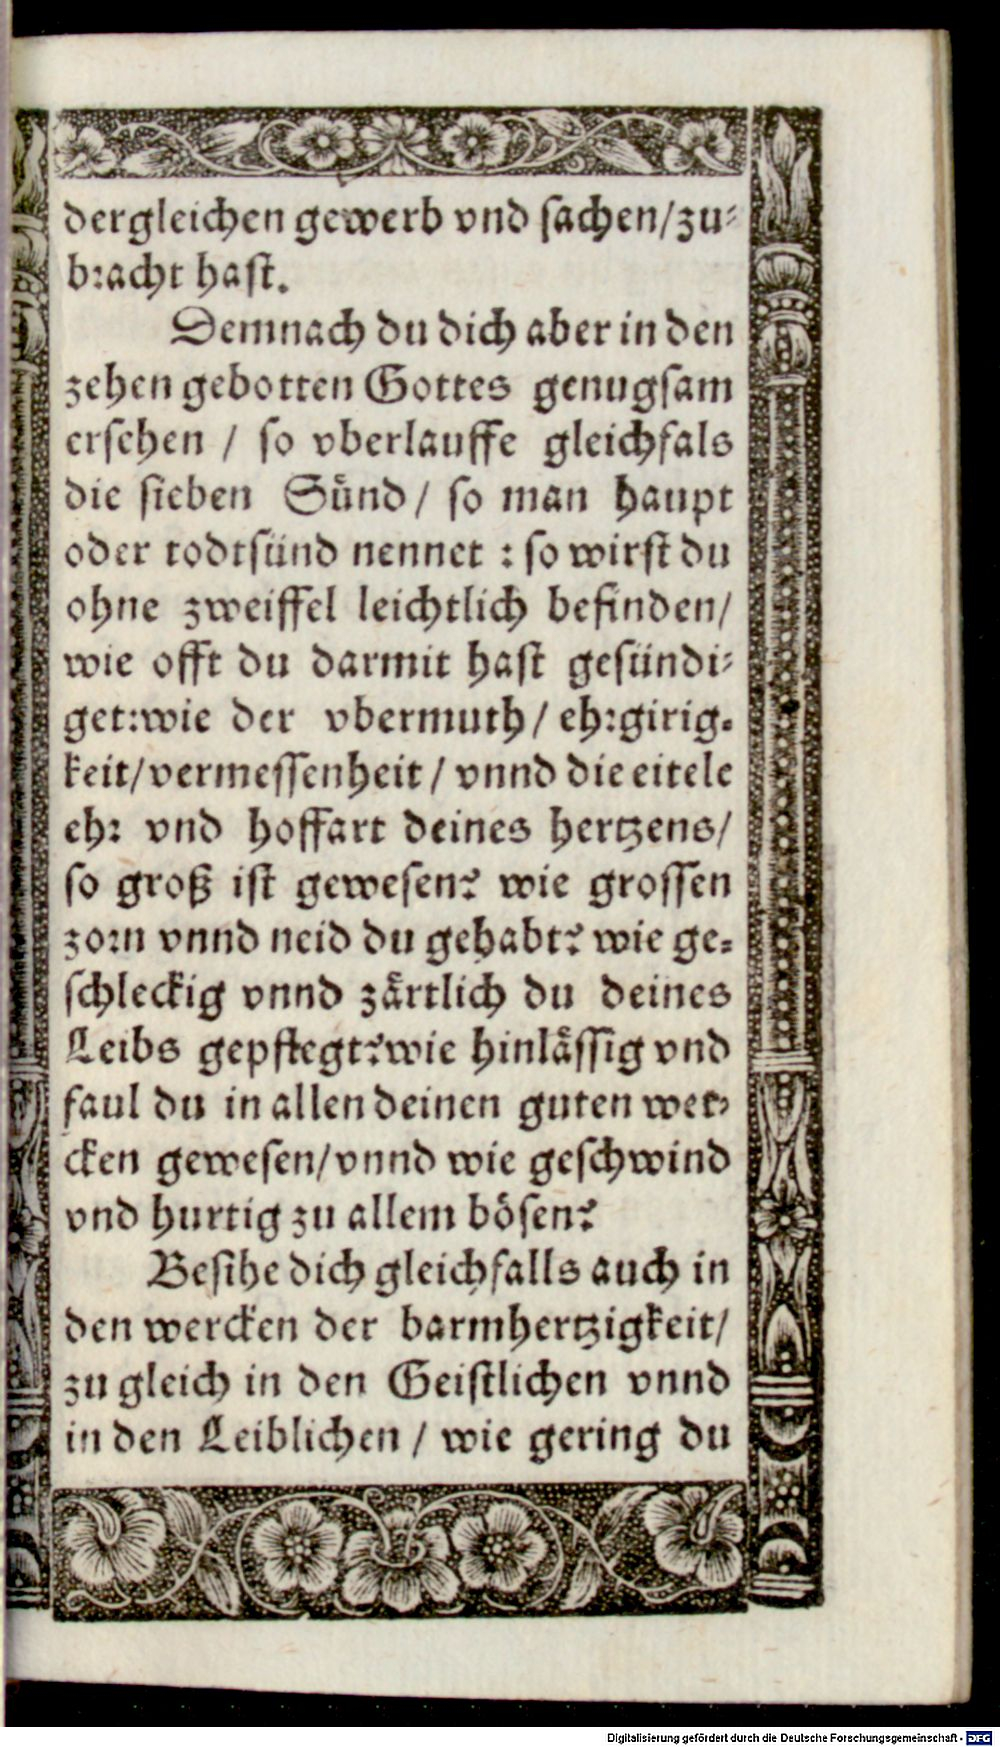 dergleichen gewerb vnd sachen/zu-
bracht hast.
Demnach du dich aber in den
zehen gebotten Gottes genugsam
ersehen / so vberlauffe gleichfals
die sieben Sünd/ so man haupt
oder todtsünd nennet : so wirst du
ohne zweiffel leichtlich befinden/
wie offt du darmit hast gesündi-
get:wie der vbermuth/ ehrgirig-
keit/vermessenheit/ vnnd die eitele
ehr vnd hoffart deines hertzens/
so groß ist gewesen? wie grossen
zorn vnnd neid du gehabt? wie ge-
schleckig vnnd zärtlich du deines
Leibs gepflegt?wie hinlässig vnd
faul du in allen deinen guten wer-
cken gewesen/vnnd wie geschwind
vnd hurtig zu allem bösen?
Besihe dich gleichfalls auch in
den wercken der barmhertzigkeit/
zu gleich in den Geistlichen vnnd
in den Leiblichen / wie gering du
Digitalisierung gefördert durch die Deutsche Forschungsgemeinschaft - DFG